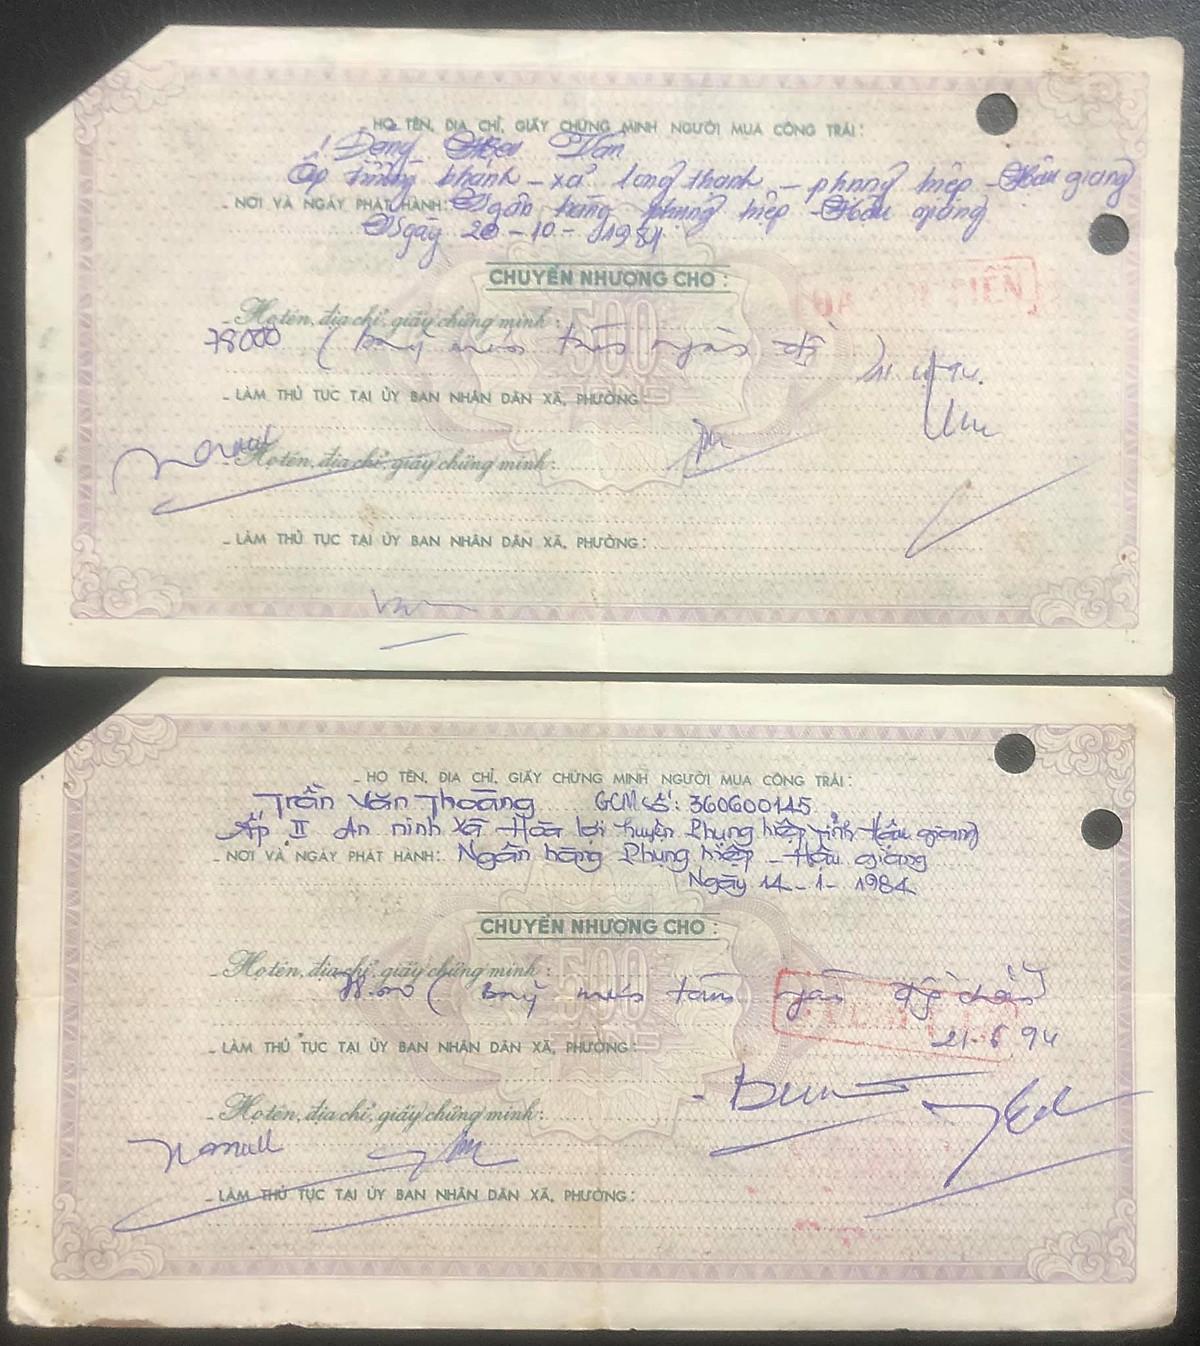 _ HỌ TÊN, ĐỊA CHỈ, GIẤY CHỨNG MINH NGƯỜI MUA CÔNG TRÁI:
Văn
Ấp khanh - xã long thanh - phụng hiệp - Hậu giang
_ NƠI VÀ NGÀY PHÁT HÀNH: Ngân hàng phụng hiệp - Hậu giang
Ngày 20-10-1984
CHUYỂN NHƯỢNG CHO:
500
ĐỒNG
_ Họ tên, địa chỉ, giấy chứng minh:
78000 (bảy mươi tám ngàn đ)
_ LÀM THỦ TỤC TẠI ỦY BAN NHÂN DÂN XÃ, PHƯỜNG:
_ Họ tên, địa chỉ, giấy chứng minh:
_ LÀM THỦ TỤC TẠI ỦY BAN NHÂN DÂN XÃ, PHƯỜNG:
_ HỌ TÊN, ĐỊA CHỈ, GIẤY CHỨNG MINH NGƯỜI MUA CÔNG TRÁI:
Trần Văn Thoàng GCM số: 360600145
Ấp II An ninh xã Hòa lợi huyện Phụng hiệp tỉnh Hậu giang
_ NƠI VÀ NGÀY PHÁT HÀNH: Ngân hàng Phụng hiệp - Hậu giang
Ngày 14-1-1984
CHUYỂN NHƯỢNG CHO:
500
ĐỒNG
_ Họ tên, địa chỉ, giấy chứng minh:
78.000 (bảy mươi tám ngàn đg chẵn)
21-6 94
_ LÀM THỦ TỤC TẠI ỦY BAN NHÂN DÂN XÃ, PHƯỜNG:
_ Họ tên, địa chỉ, giấy chứng minh:
_ LÀM THỦ TỤC TẠI ỦY BAN NHÂN DÂN XÃ, PHƯỜNG: